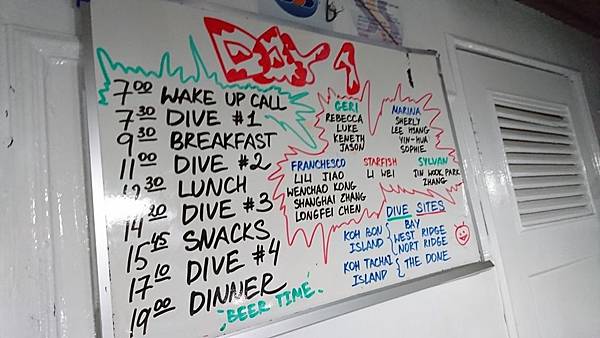 DAY 1
7:00 WAKE UP CALL
7:30 DIVE #1
9:30 BREAKFAST
11:00 DIVE #2
12:30 LUNCH
14:30 DIVE #3
15:45 SNACKS
17:10 DIVE #4
19:00 DINNER
BEER TIME!
GERI
REBECCA
LUKE
KENETH
JASON
MARINA
SHERLY
LEE HSANG
YIN-HUA
SOPHIE
FRANCHESCO
LILI JIAO
WENCHAO KONG
SHANGHAI ZHANG
LONGFEI CHEN
STARFISH
LI WEI
SYLVAN
JIN WOOK PARK
ZHANG
DIVE SITES
KOH BON ISLAND { BAY
WEST RIDGE
NORT RIDGE
KOH TACHAI ISLAND { THE DOME